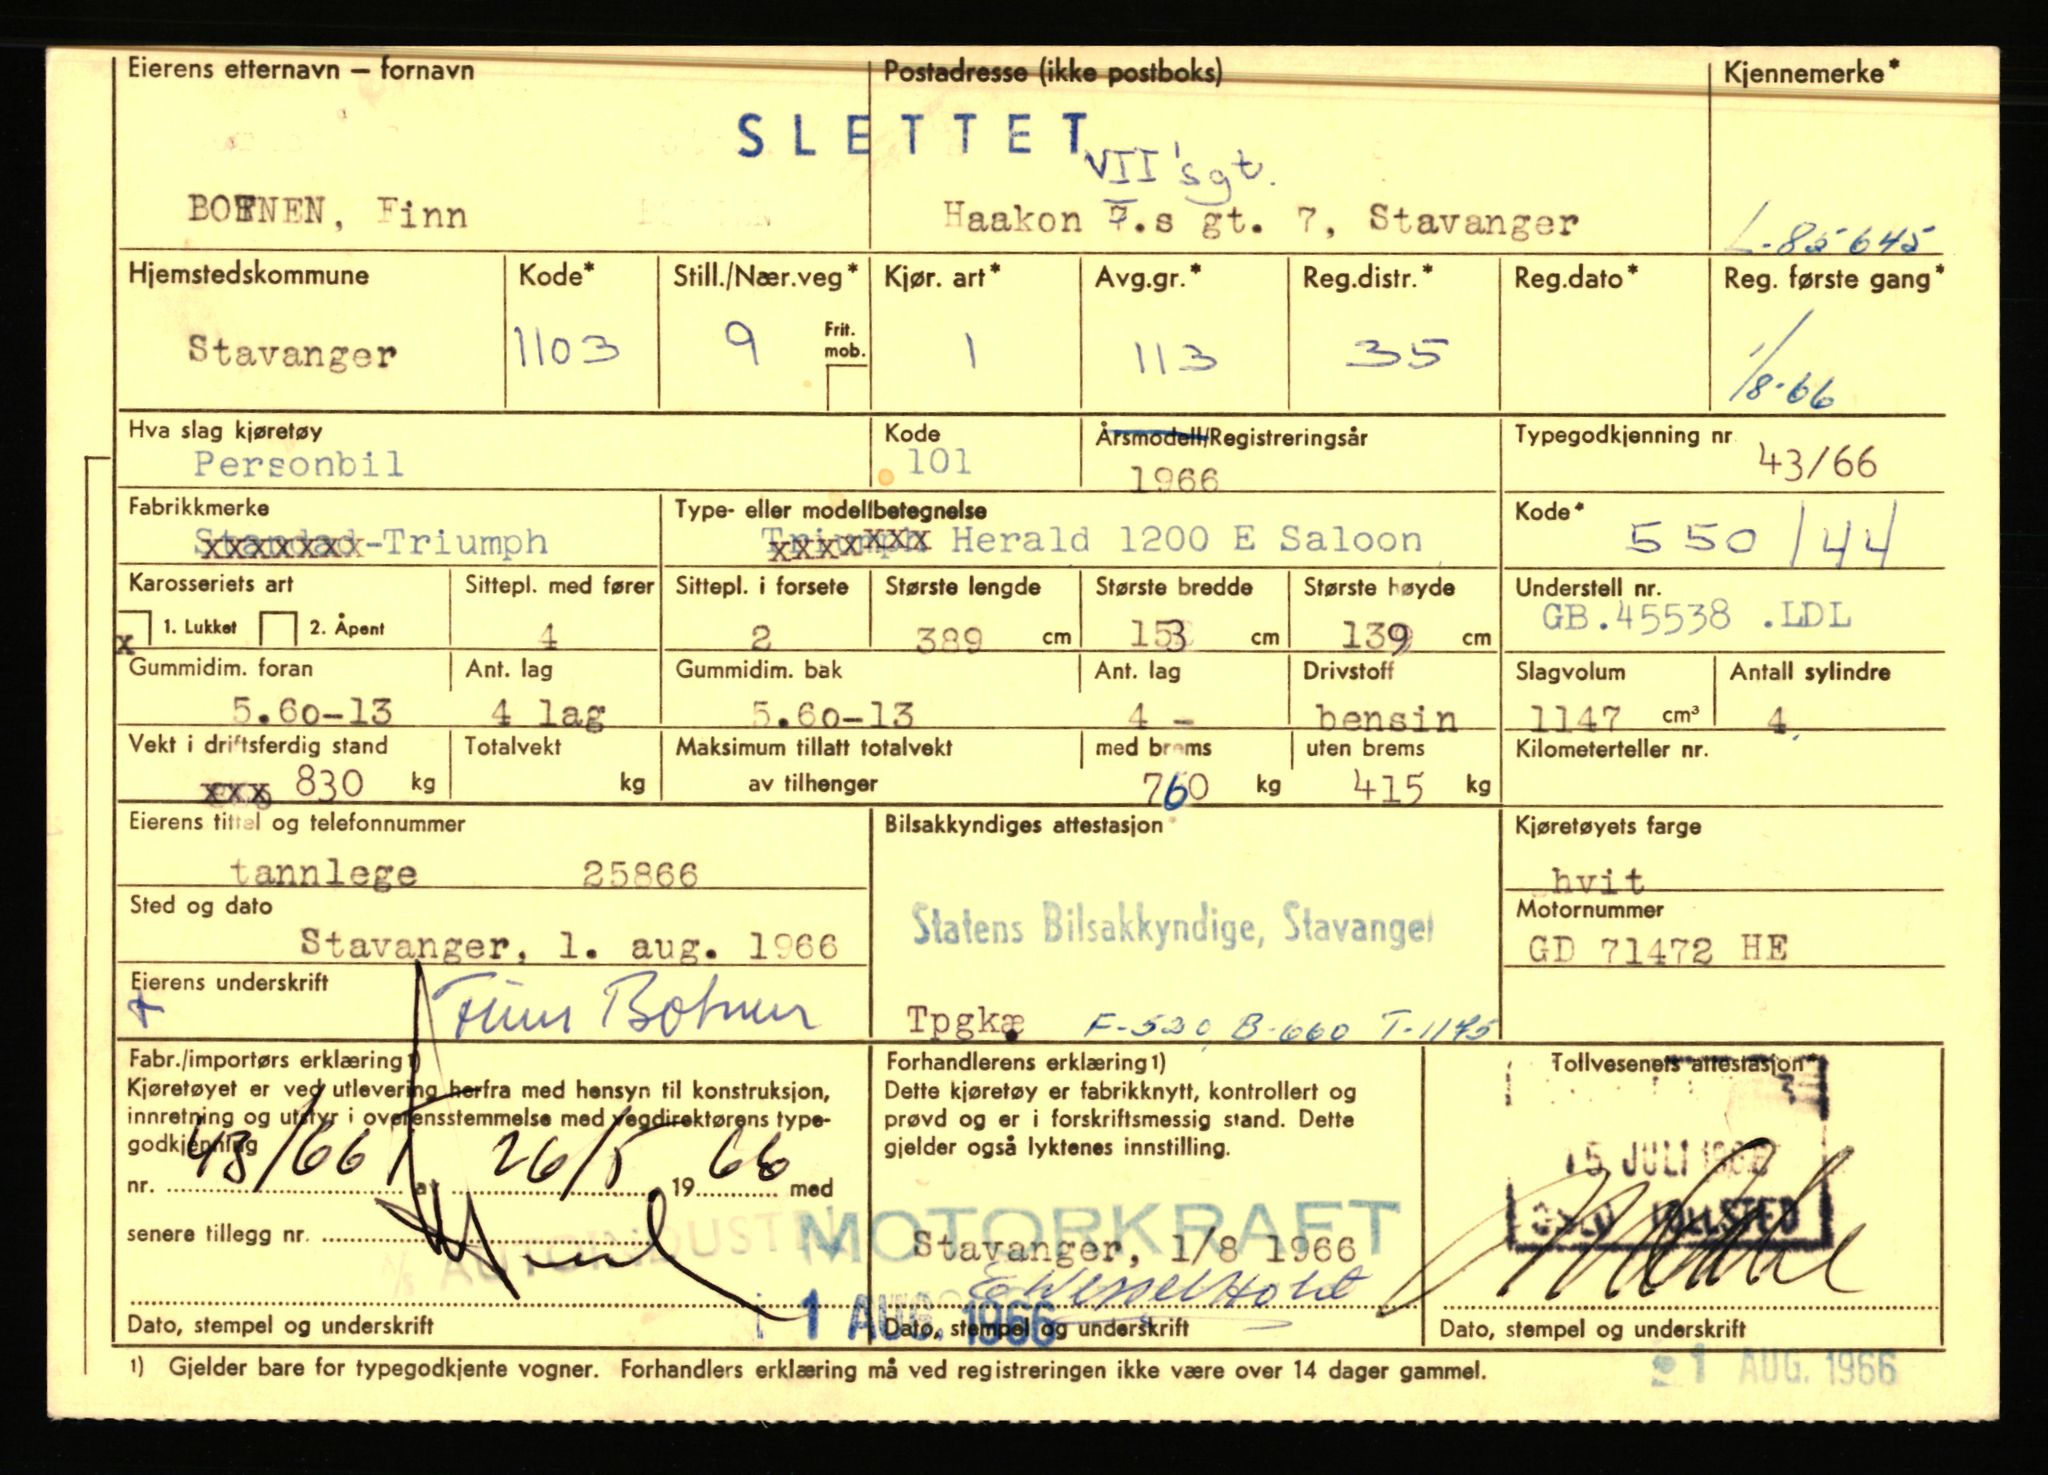 Eierens etternavn – fornavn
Postadresse (ikke postboks)
Kjennemerke*
SLETTET
VII'sgt.
BOENEN, Finn
Haakon 7.s gt. 7, Stavanger
L-85645
Hjemstedskommune
Kode*
Still./Nær.veg*
Kjør. art*
Avg.gr.*
Reg.distr.*
Reg.dato*
Reg. første gang*
Stavanger
1103
9
Frit. mob.
1
113
35
1/8-66
Hva slag kjøretøy
Kode
Årsmodell/Registreringsår
Typegodkjenning nr
Personbil
101
1966
43/66
Fabrikkmerke
Type- eller modellbetegnelse
Kode*
Standad-Triumph
Triumph Herald 1200 E Saloon
550/44
Karosseriets art
Sittepl. med fører
Sittepl. i forsete
Største lengde
Største bredde
Største høyde
Understell nr.
x 1. Lukket 2. Åpent
4
2
389 cm
153 cm
139 cm
GB.45538 .LDL
Gummidim. foran
Ant. lag
Gummidim. bak
Ant. lag
Drivstoff
Slagvolum
Antall sylindre
5.60-13
4 lag
5.60-13
4 -
bensin
1147 cm³
4
Vekt i driftsferdig stand
Totalvekt
Maksimum tillatt totalvekt
med brems
uten brems
Kilometerteller nr.
xxx 830 kg
kg
av tilhenger
760 kg
415 kg
Eierens tittel og telefonnummer
Bilsakkyndiges attestasjon
Kjøretøyets farge
tannlege 25866
hvit
Sted og dato
Statens Bilsakkyndige, Stavanger
Motornummer
Stavanger, 1. aug. 1966
GD 71472 HE
Eierens underskrift
+ Finn Botnen
Tpgkæ F-520, B-660 T-1175
Fabr./importørs erklæring 1)
Forhandlerens erklæring 1)
Tollvesenets attestasjon
Kjøretøyet er ved utlevering herfra med hensyn til konstruksjon,
innretning og utstyr i overensstemmelse med vegdirektørens type-
godkjenning
Dette kjøretøy er fabrikknytt, kontrollert og
prøvd og er i forskriftsmessig stand. Dette
gjelder også lyktenes innstilling.
15 JULI 1966
OSLO TOLLSTED
nr. 43/66 av 26/5 1966 med
senere tillegg nr.
A/S AUTOINDUSTRI
MOTORKRAFT
Stavanger, 1/8 1966
E Wessel Holst
1 AUG. 1966
Dato, stempel og underskrift
Dato, stempel og underskrift
Dato, stempel og underskrift
1) Gjelder bare for typegodkjente vogner. Forhandlers erklæring må ved registreringen ikke være over 14 dager gammel.
21 AUG. 1966